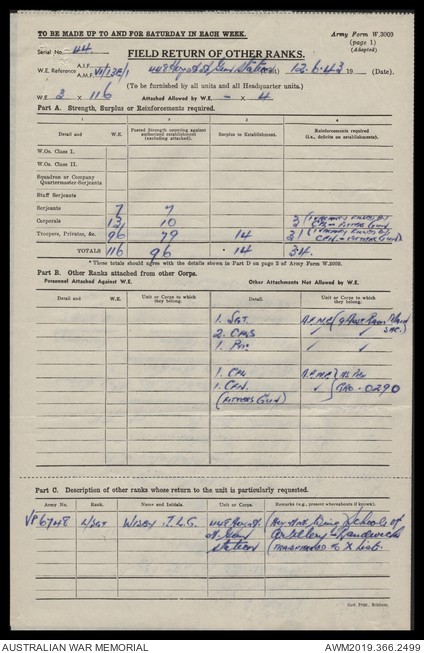 TO BE MADE UP TO AND FOR SATURDAY IN EACH WEEK.
Army Form W.3009
(page 1)
(Adapted)
Serial No. 44
FIELD RETURN OF OTHER RANKS.
W.E. Reference A.I.F. A.M.F. VI/13E/1
Station (Unit) 12.6.43 19 (Date).
(To be furnished by all units and all Headquarter units.)
W.E. 3 x 116 Attached Allowed by W.E. - x 4
Part A. Strength, Surplus or Reinforcements required.
1 2 3 4
Detail and W.E. Posted Strength counting against authorized establishment (excluding attached). Surplus to Establishment. Reinforcements required (i.e., deficits on establishments).
W.Os. Class I.
W.Os. Class II.
Squadron or Company Quartermaster-Serjeants
Staff Serjeants
Serjeants 7 7
Corporals 13 10 3
Troopers, Privates, &c. 96 79 14 31
TOTALS 116 96 * 14 34.
* These totals should agree with the details shown in Part D on page 2 of Army Form W.3009.
Part B. Other Ranks attached from other Corps.
Personnel Attached Against W.E. Other Attachments Not Allowed by W.E.
Detail and W.E. Unit or Corps to which they belong. Detail. Unit or Corps to which they belong.
1. Sgt.
2. Cpls ✓ ✓
1. Pte ✓ ✓
1. Cpl As Per
1. Cfn. ✓ GRO. 0290
(Fitters Gun)
Part C. Description of other ranks whose return to the unit is particularly requested.
Army No. Rank. Name and Initials. Unit or Corps. Remarks (e.g., present whereabouts if known).
L/Sgt Wing Schools of
A. Gun Artillery Randwick
Station X list.
Govt. Print., Brisbane.
AUSTRALIAN WAR MEMORIAL
AWM2019.366.2499